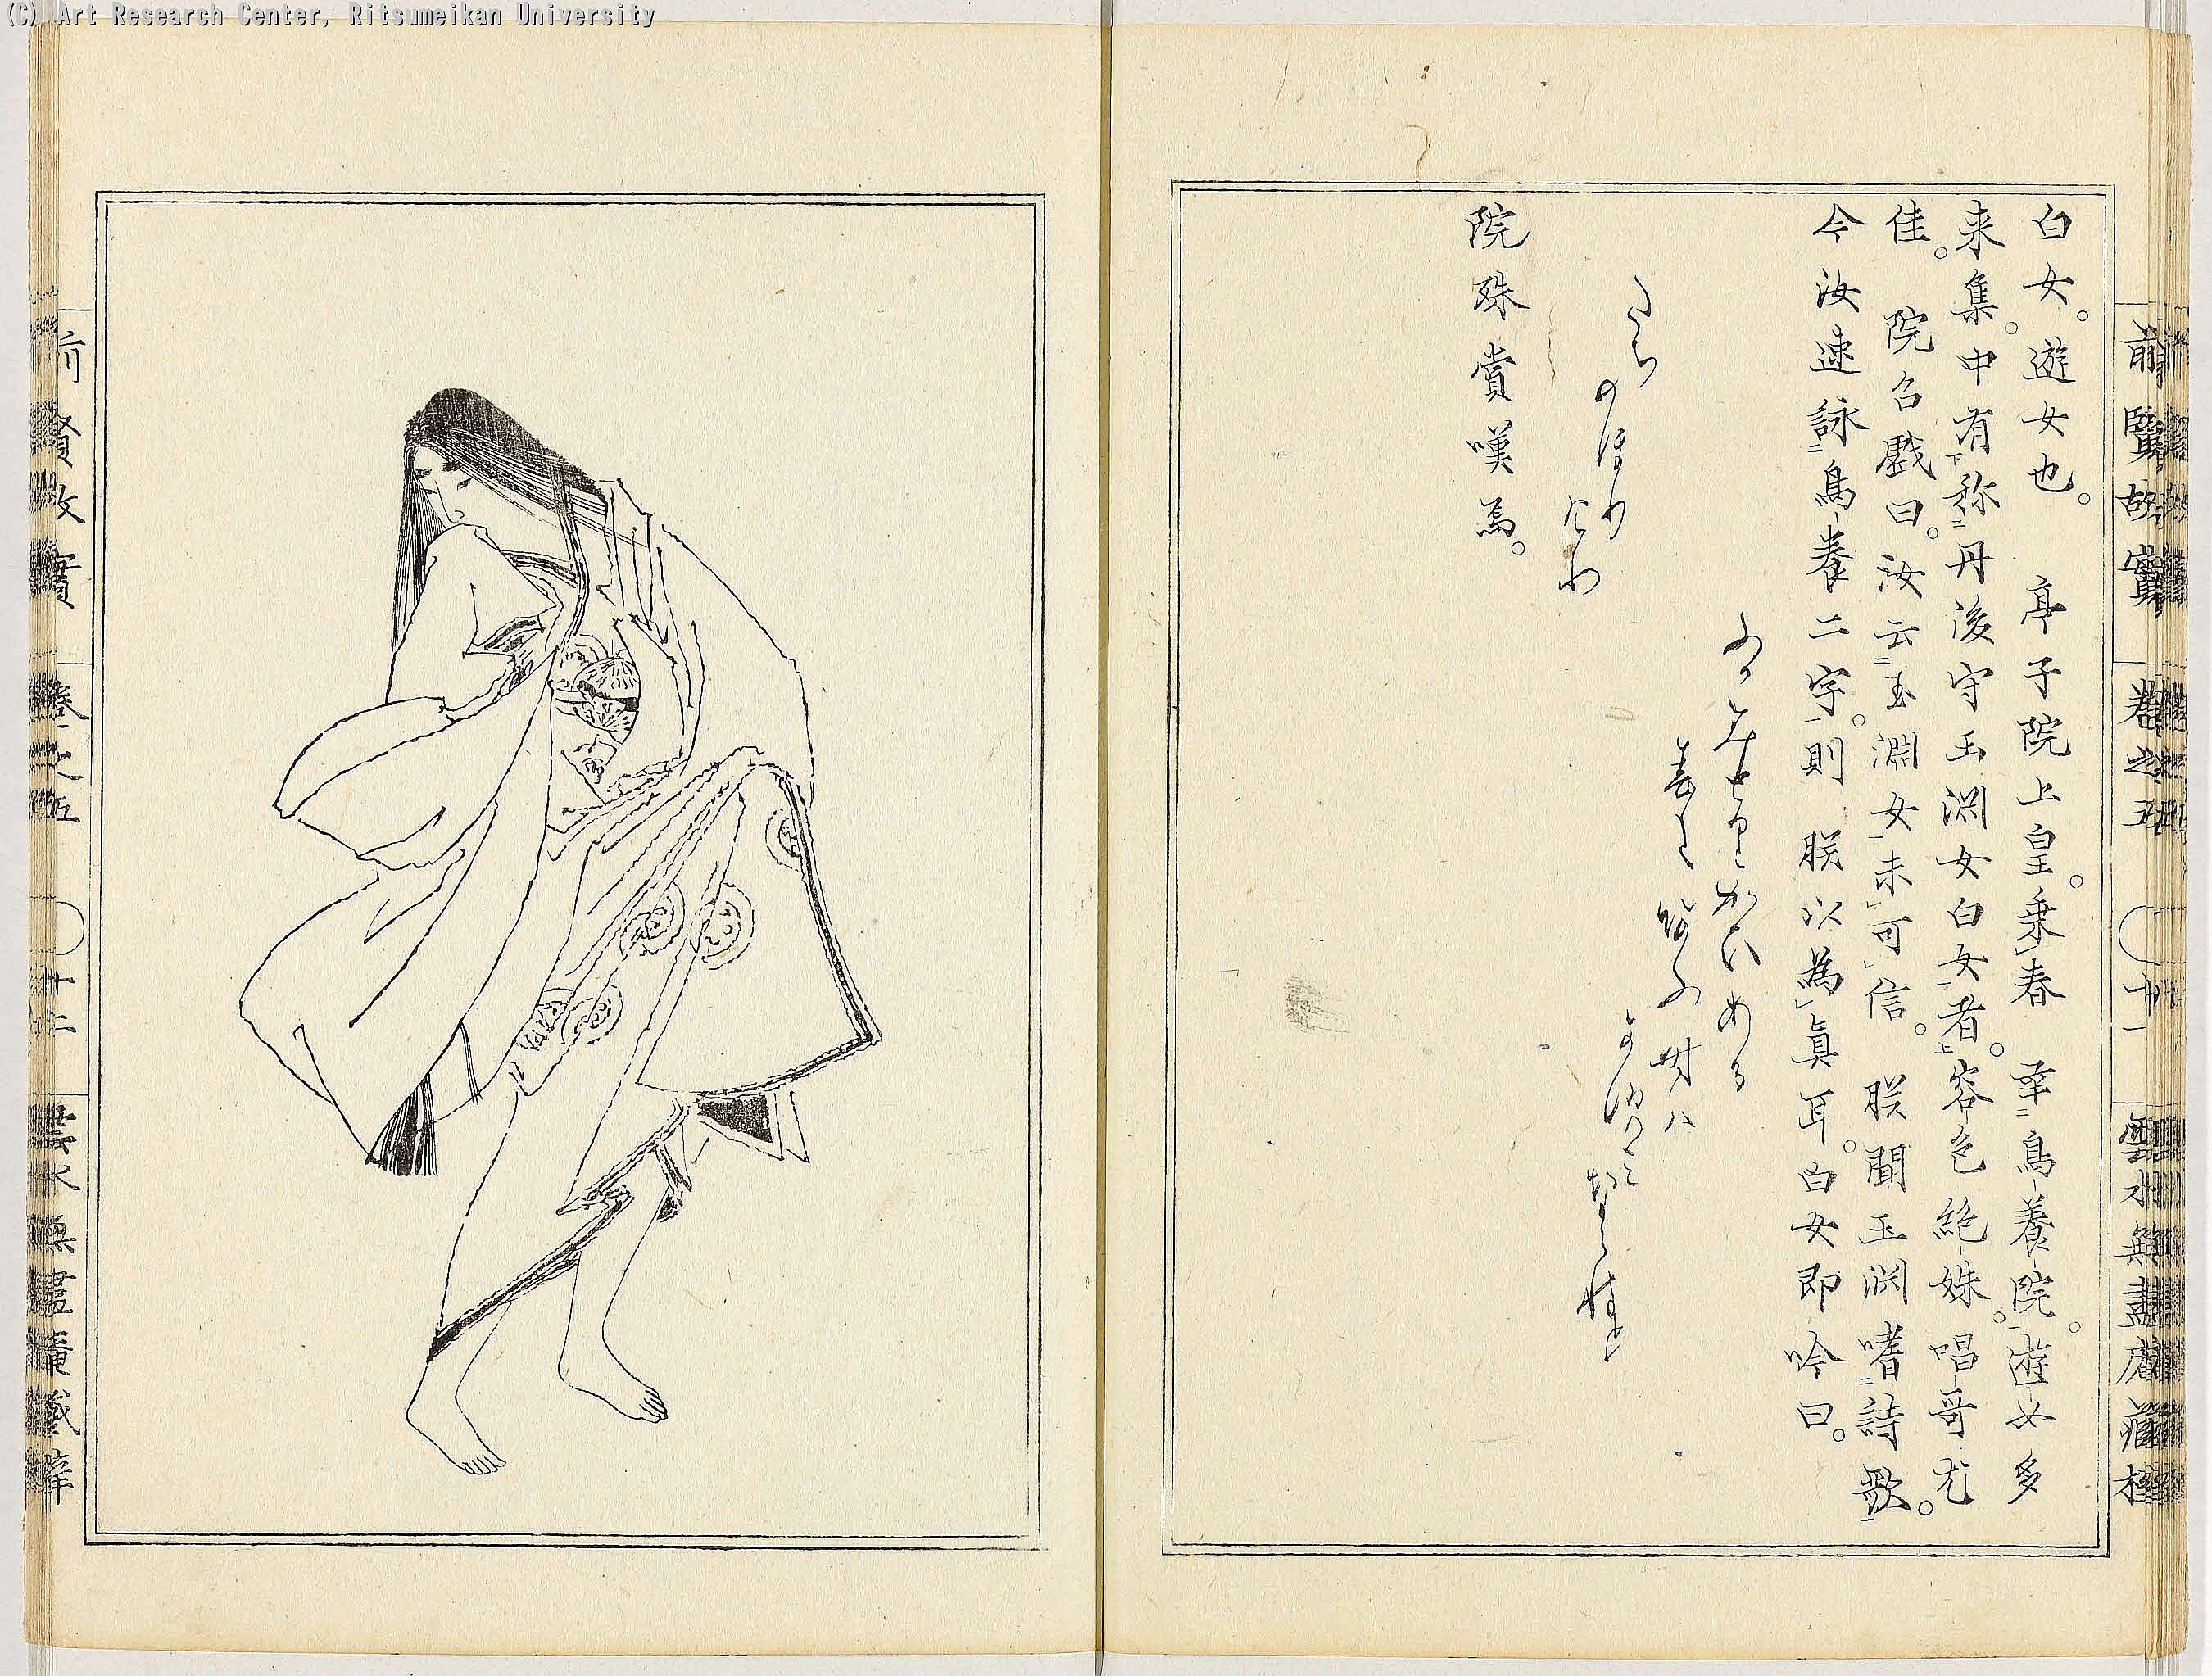 (C) Art Research Center, Ritsumeikan University
前賢故實 卷之五 〇十一 雲水無盡庵藏梓
白女。遊女也。 亭子院上皇。乗春 幸鳥養院。遊女多
来集。中有称丹後守玉渕女白女者。容色絶姝。唱哥尤
佳。 院召戯曰。汝云玉淵女未可信。 朕聞玉渕嗜詩歌。
今汝速詠鳥養二字。則 朕以為眞耳。白女即吟曰。
ふかみとりかひある
春にあふ時ハ
かすみならねと
たち
のほり
けり
院殊賞嘆焉。
前賢故實 卷之五 〇十二 雲水無盡庵藏梓